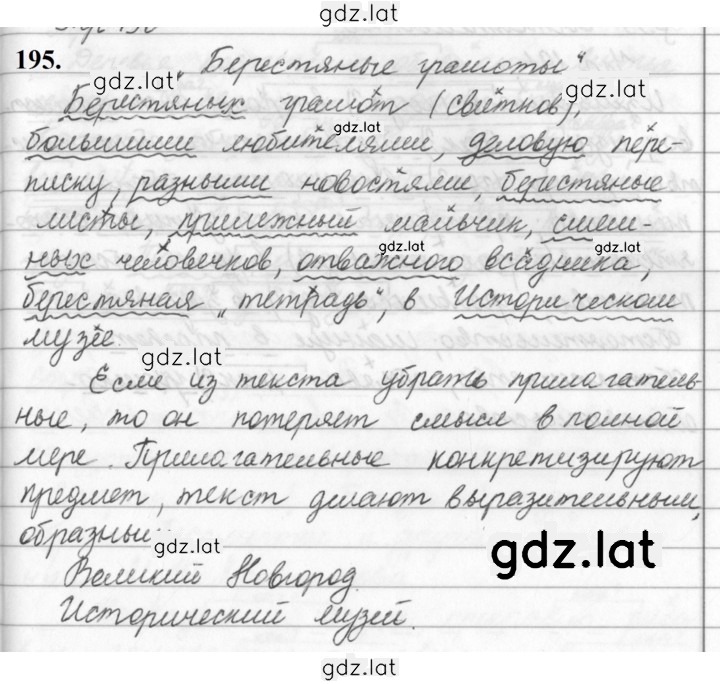 gdz.lat
195.
gdz.lat
„Берестяные грамоты"
gdz.lat
Берестяных грамот (свитков),
gdz.lat
большими любителями, деловую пере-
писку, разными новостями, берестяные
листы, прилежный мальчик, смеш-
gdz.lat
gdz.lat
ных человечков, отважного всадника,
берестяная „тетрадь", в Историческом
музее.
gdz.lat
Если из текста убрать прилагатель-
ные, то он потеряет смысл в полной
мере. Прилагательные конкретизируют
предмет, текст делают выразительным,
образным
gdz.lat
gdz.lat
Великий Новгород.
Исторический музей.
gdz.lat